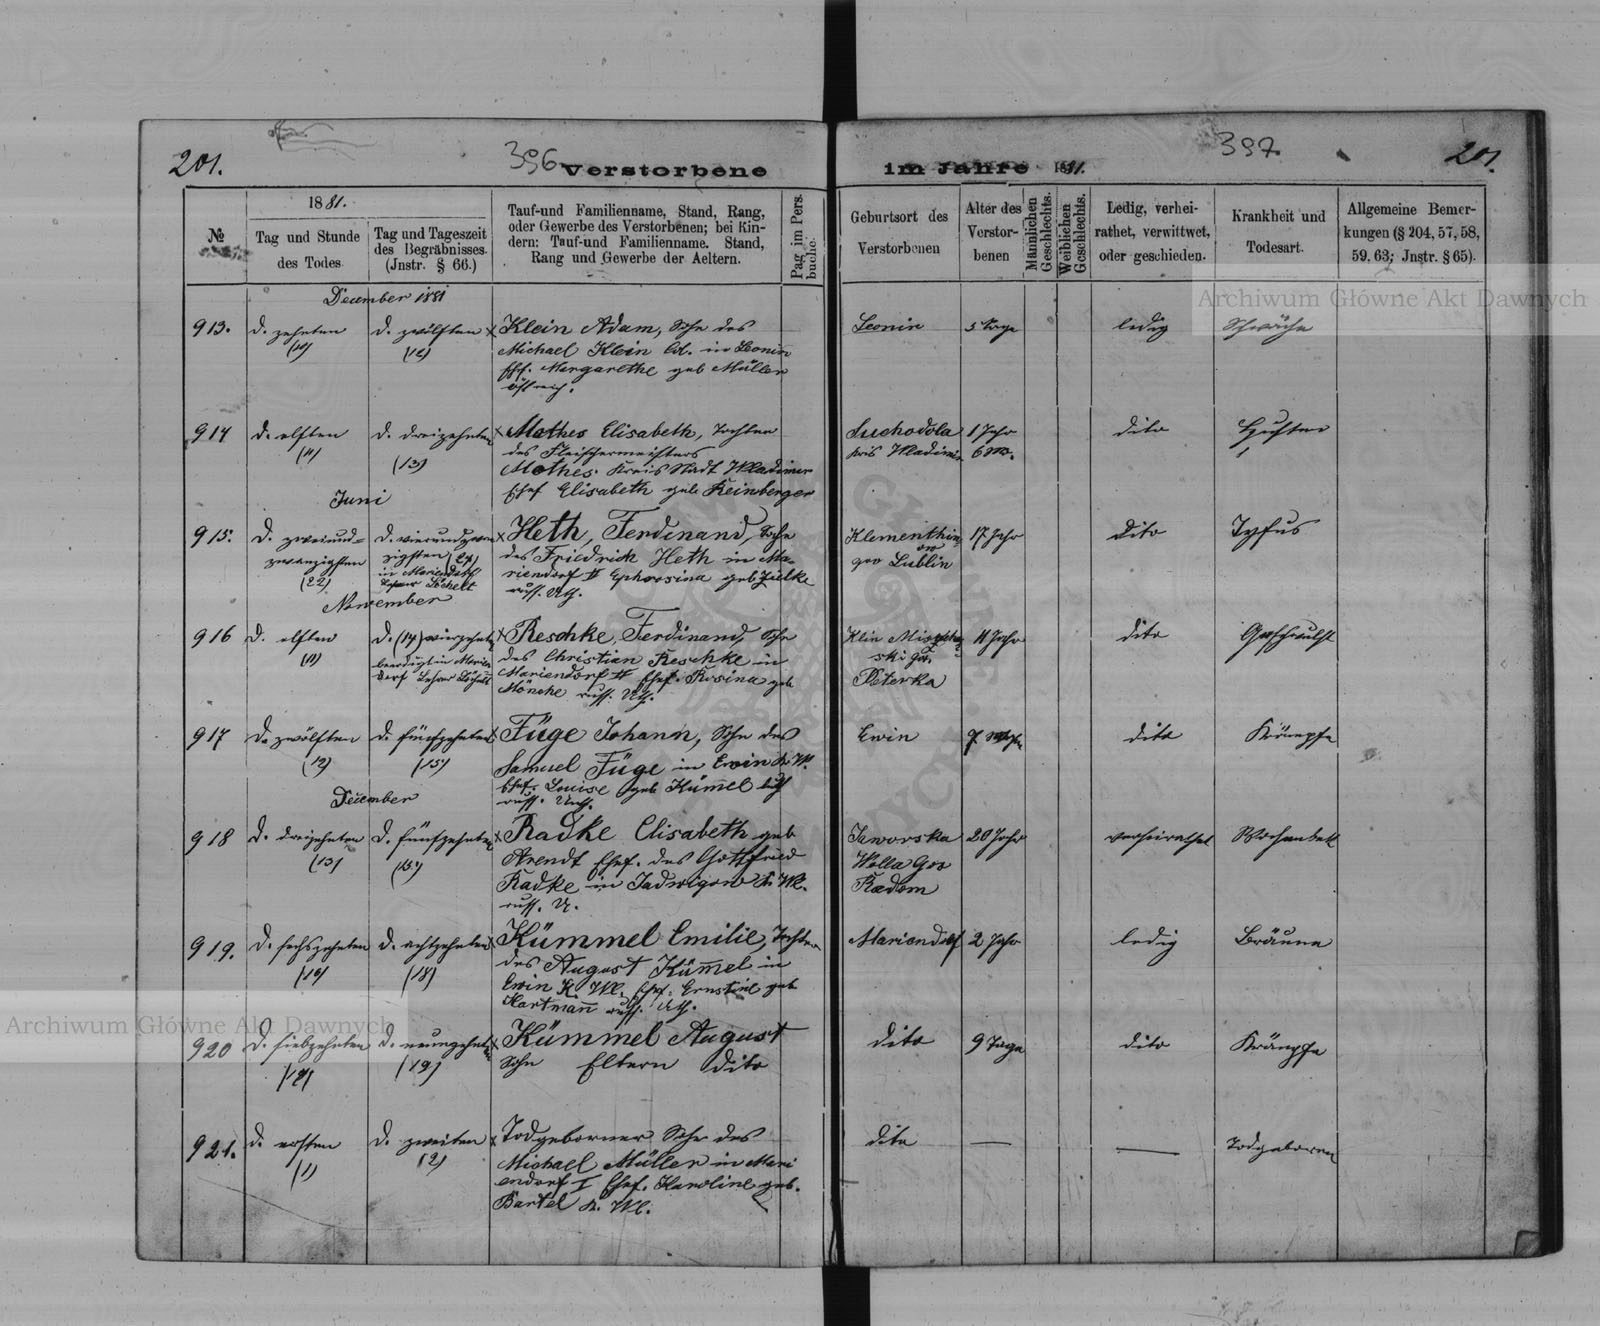 201.
396
Verstorbene
im Jahre 1881.
397.
201.
№
1881.
Tag und Stunde
des Todes
Tag und Tageszeit
des Begräbnisses.
(Jnstr. § 66.)
Tauf-und Familienname, Stand, Rang,
oder Gewerbe des Verstorbenen; bei Kin-
dern: Tauf-und Familienname. Stand,
Rang und Gewerbe der Aeltern.
Pag im Pers.
buche.
Geburtsort des
Verstorbenen
Alter des
Verstor-
benen
Männlichen
Geschlechts.
Weiblichen
Geschlechts.
Ledig, verhei-
rathet, verwittwet,
oder geschieden.
Krankheit und
Todesart.
Allgemeine Bemer-
kungen (§ 204, 57, 58,
59, 63; Jnstr. § 65).
December 1881
913.
d. zehnten
(10)
d. zwölften
(12)
x Klein Adam, Sohn des
Michael Klein in Leonin
Ehef. Margarethe geb Müller
östreich.
Leonin
5 Tage
ledig
Schwäche
914
d. elften
(11)
d. dreizehnten
(13)
x Mathes Elisabeth, Tochter
des Fleischermeisters
Mathes. Kreis Stadt Wladimir
Ehef Elisabeth geb Reinberger
Suchodola
kris Wladimir
1 Jahr
6 M.
dito
Husten
Juni
915.
d. zweiund=
zwanzigsten
(22)
d. vierundzwan
zigsten (24)
in Mariendorf
x Heth, Ferdinand, Sohn
des Friedrich Heth in Ma-
riendorf II Ephrosina geb Zielke
russ. Uth.
Klementhin
ow
gov Lublin
17 Jahr
dito
Typfus
November
916
d. elften
(11)
d. (14) vierzehnten
beerdigt in Marien
dorf Lehrer
x Reschke, Ferdinand, Sohn
des Christian Reschke in
Mariendorf II Ehef. Rosina geb
Mönche russ. Uth.
Klin
ski Gov.
Peterka
11 Jahr
dito
Geschwulst
917
d. zwölften
(12)
d. fünfzehnten
(15)
x Füge Johann, Sohn des
Samuel Füge in Erwin K. Wl.
Ehef. Louise geb Kümmel
russ. Unth.
Erwin
dito
Krämpfe
December
918
d. dreizehnten
(13)
d. fünfzehnten
(15)
x Radke Elisabeth geb
Arendt Ehef. des Gottfried
Radke in Jadwigow K. Wl.
russ. U.
Jaworska
Wolla Gov
Radom
20 Jahr
verheirathet
Wochenbett
919.
d. sechszehnten
(16)
d. achtzehnten
(18)
x Kümmel Emilie, Tochter
des August Kümmel in
Erwin K. Wl. Ehef. Ernstine geb
Hartmann russ. Uth.
Mariendorf
2 Jahr
ledig
Bräune
920
d. siebzehnten
(17)
d. neunzehnten
(19)
x Kümmel August
Sohn Eltern dito
dito
9 Tage
dito
Krämpfe
921.
d. ersten
(1)
d. zweiten
(2)
x Todgeborner Sohn des
Michael Müller in Mari
endorf I Ehef. Karoline geb.
Bartel K. Wl.
dito
—
—
Todgeboren
Archiwum Główne Akt Dawnych
Archiwum Główne Akt Dawnych